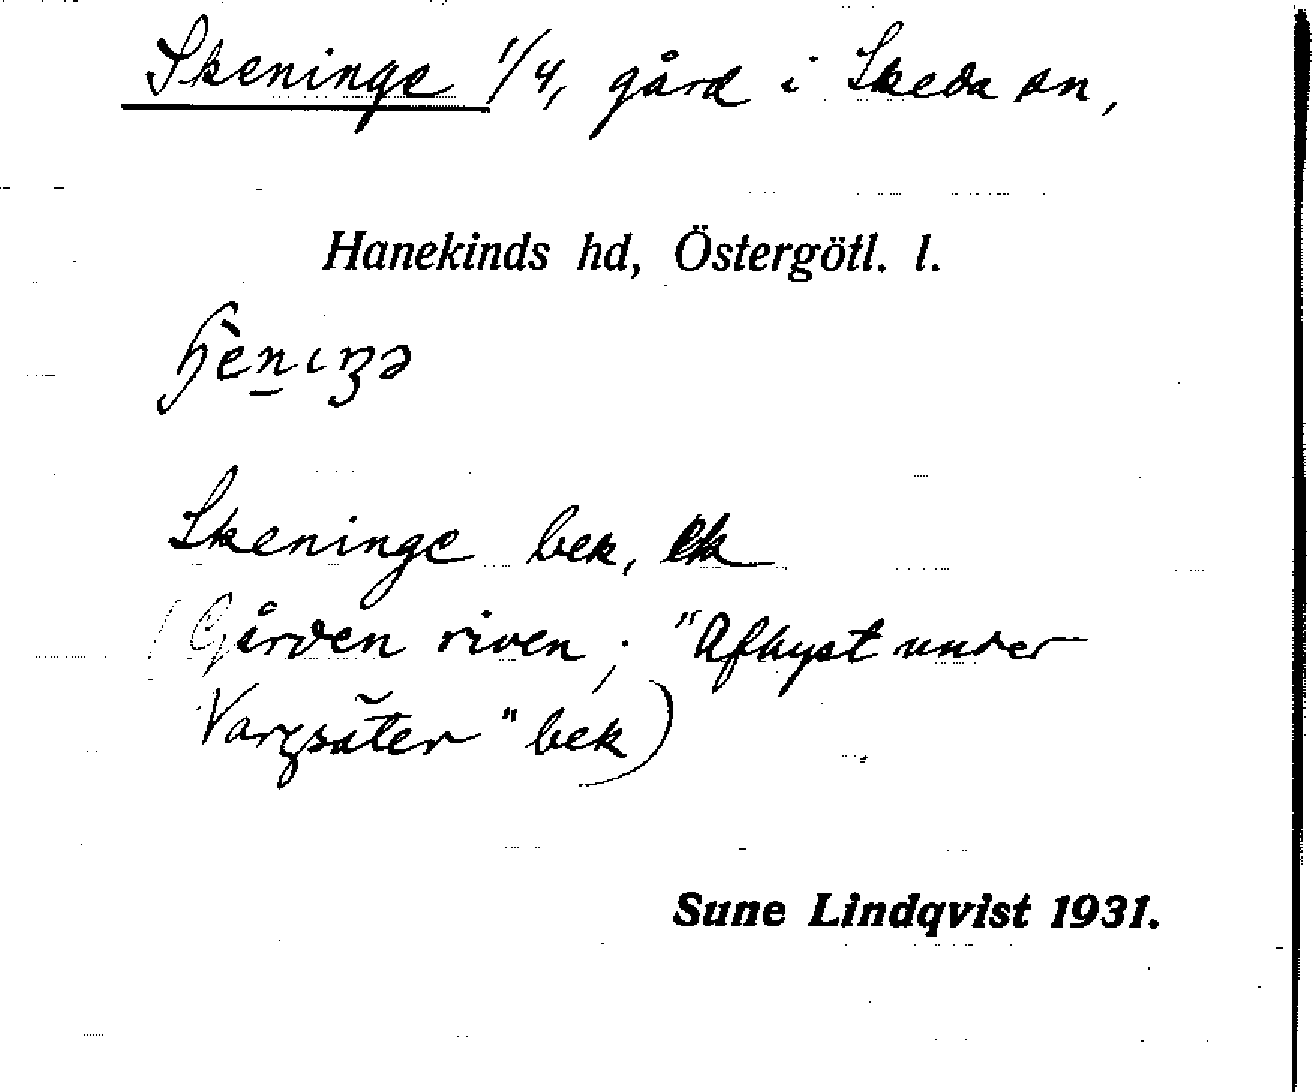 Skeninge 1/4, gård i Skeda sn,
Hanekinds hd, Östergötl. l.
Skeninge bek, ek
(Gården riven; "Afhyst under
Vargsäter" bek)
Sune Lindqvist 1931.